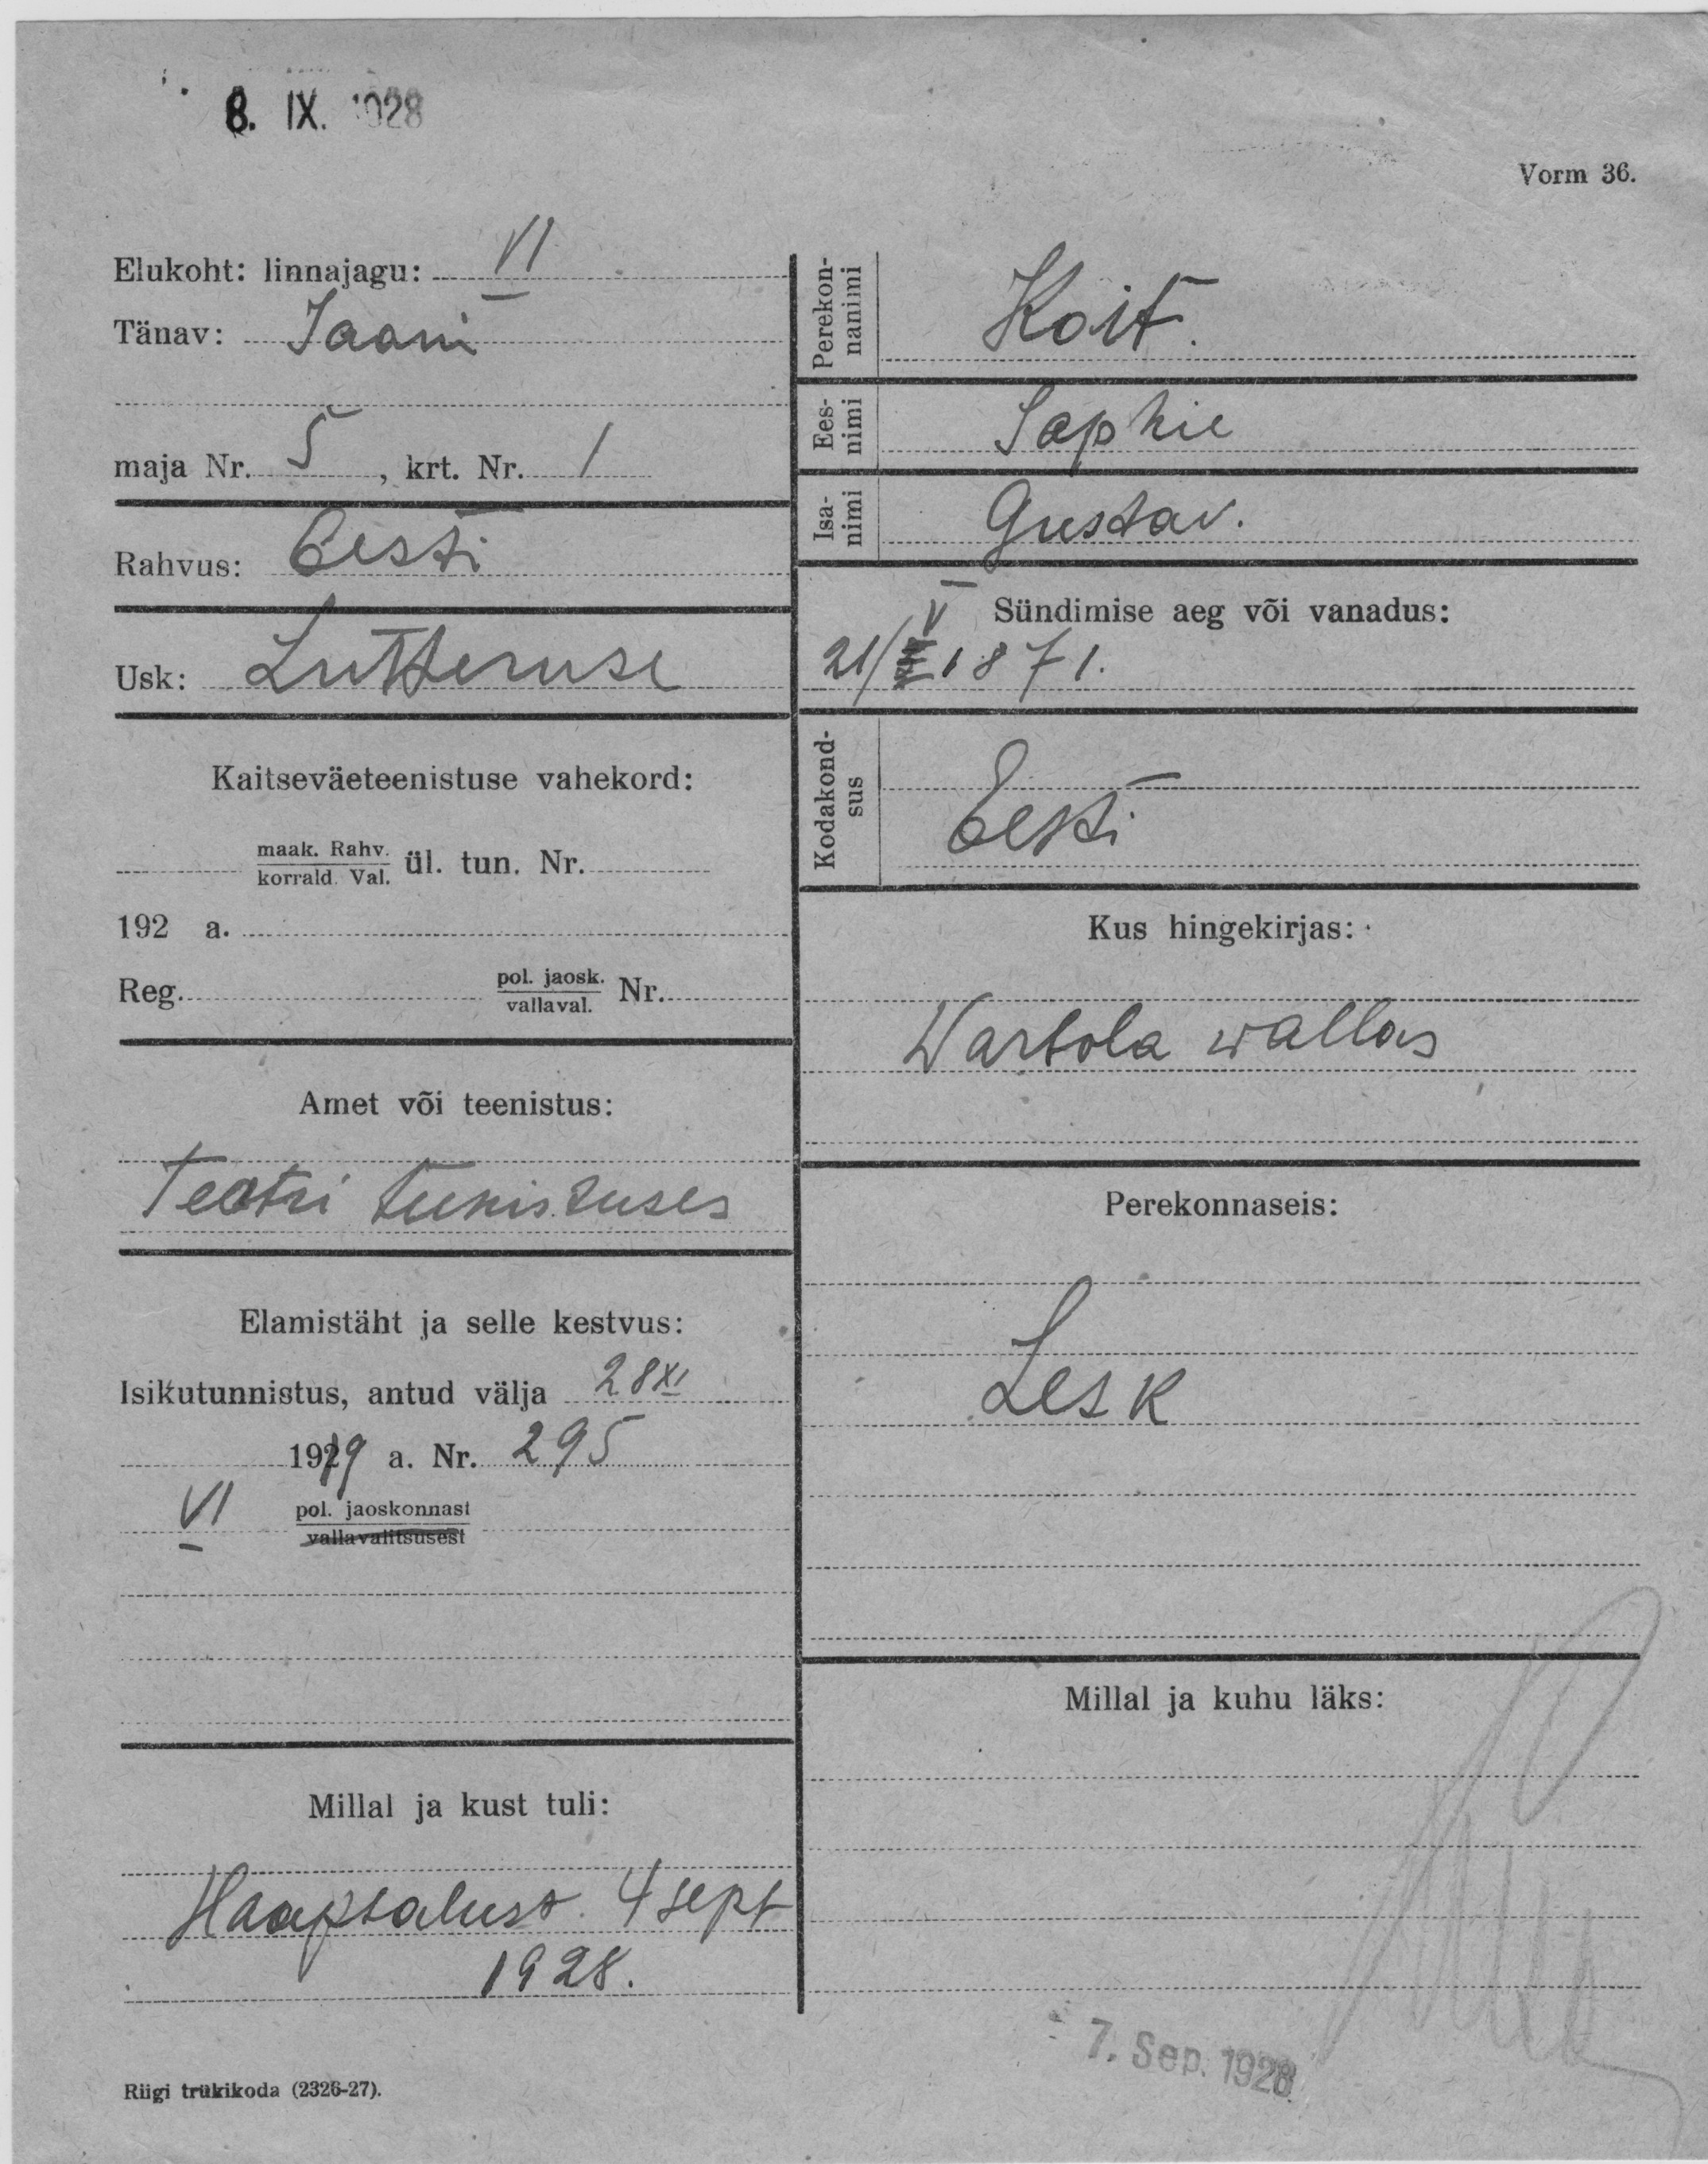 8. IX. 1928
Vorm 36.
Elukoht: linnajagu: VI
Tänav: Jaani
maja Nr. 5, krt. Nr. 1
Rahvus: Eesti
Usk: Lutteruse
Kaitseväeteenistuse vahekord:
maak. Rahv.
korrald. Val. ül. tun. Nr.
192 a.
Reg. pol. jaosk.
vallaval. Nr.
Amet või teenistus:
Teatri teenistuses
Elamistäht ja selle kestvus:
Isikutunnistus, antud välja 28 XI
1919 a. Nr. 295
VI pol. jaoskonnast
vallavalitsusest
Millal ja kust tuli:
Haapsalust 4 sept
1928.
Perekon-
nanimi
Koit.
Ees-
nimi
Sophie
Isa-
nimi
Gustav.
Sündimise aeg või vanadus:
21/V 1871.
Kodakond-
sus
Eesti
Kus hingekirjas:
Warbola wallas
Perekonnaseis:
Lesk
Millal ja kuhu läks:
7. Sep. 1928
Riigi trükikoda (2326-27).